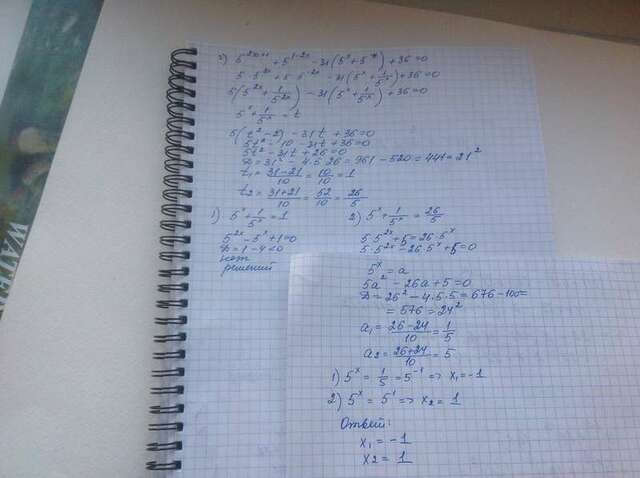 2) 5^{2x+1} + 5^{1-2x} - 31(5^x + 5^{-x}) + 36 = 0
5·5^{2x} + 5·5^{-2x} - 31(5^x + \frac{1}{5^x}) + 36 = 0
5(5^{2x} + \frac{1}{5^{2x}}) - 31(5^x + \frac{1}{5^x}) + 36 = 0
5^x + \frac{1}{5^x} = t
5(t^2 - 2) - 31t + 36 = 0
5t^2 - 10 - 31t + 36 = 0
5t^2 - 31t + 26 = 0
D = 31^2 - 4·5·26 = 961 - 520 = 441 = 21^2
t_1 = \frac{31-21}{10} = \frac{10}{10} = 1
t_2 = \frac{31+21}{10} = \frac{52}{10} = \frac{26}{5}
1) 5^x + \frac{1}{5^x} = 1
5^{2x} - 5^x + 1 = 0
D = 1 - 4 < 0
нет
решений
2) 5^x + \frac{1}{5^x} = \frac{26}{5}
5·5^{2x} + 5 = 26·5^x
5·5^{2x} - 26·5^x + 5 = 0
5^x = a
5a^2 - 26a + 5 = 0
D = 26^2 - 4·5·5 = 676 - 100 =
= 576 = 24^2
a_1 = \frac{26-24}{10} = \frac{1}{5}
a_2 = \frac{26+24}{10} = 5
1) 5^x = \frac{1}{5} = 5^{-1} => x_1 = -1
2) 5^x = 5^1 => x_2 = 1
Ответ:
x_1 = -1
x_2 = 1